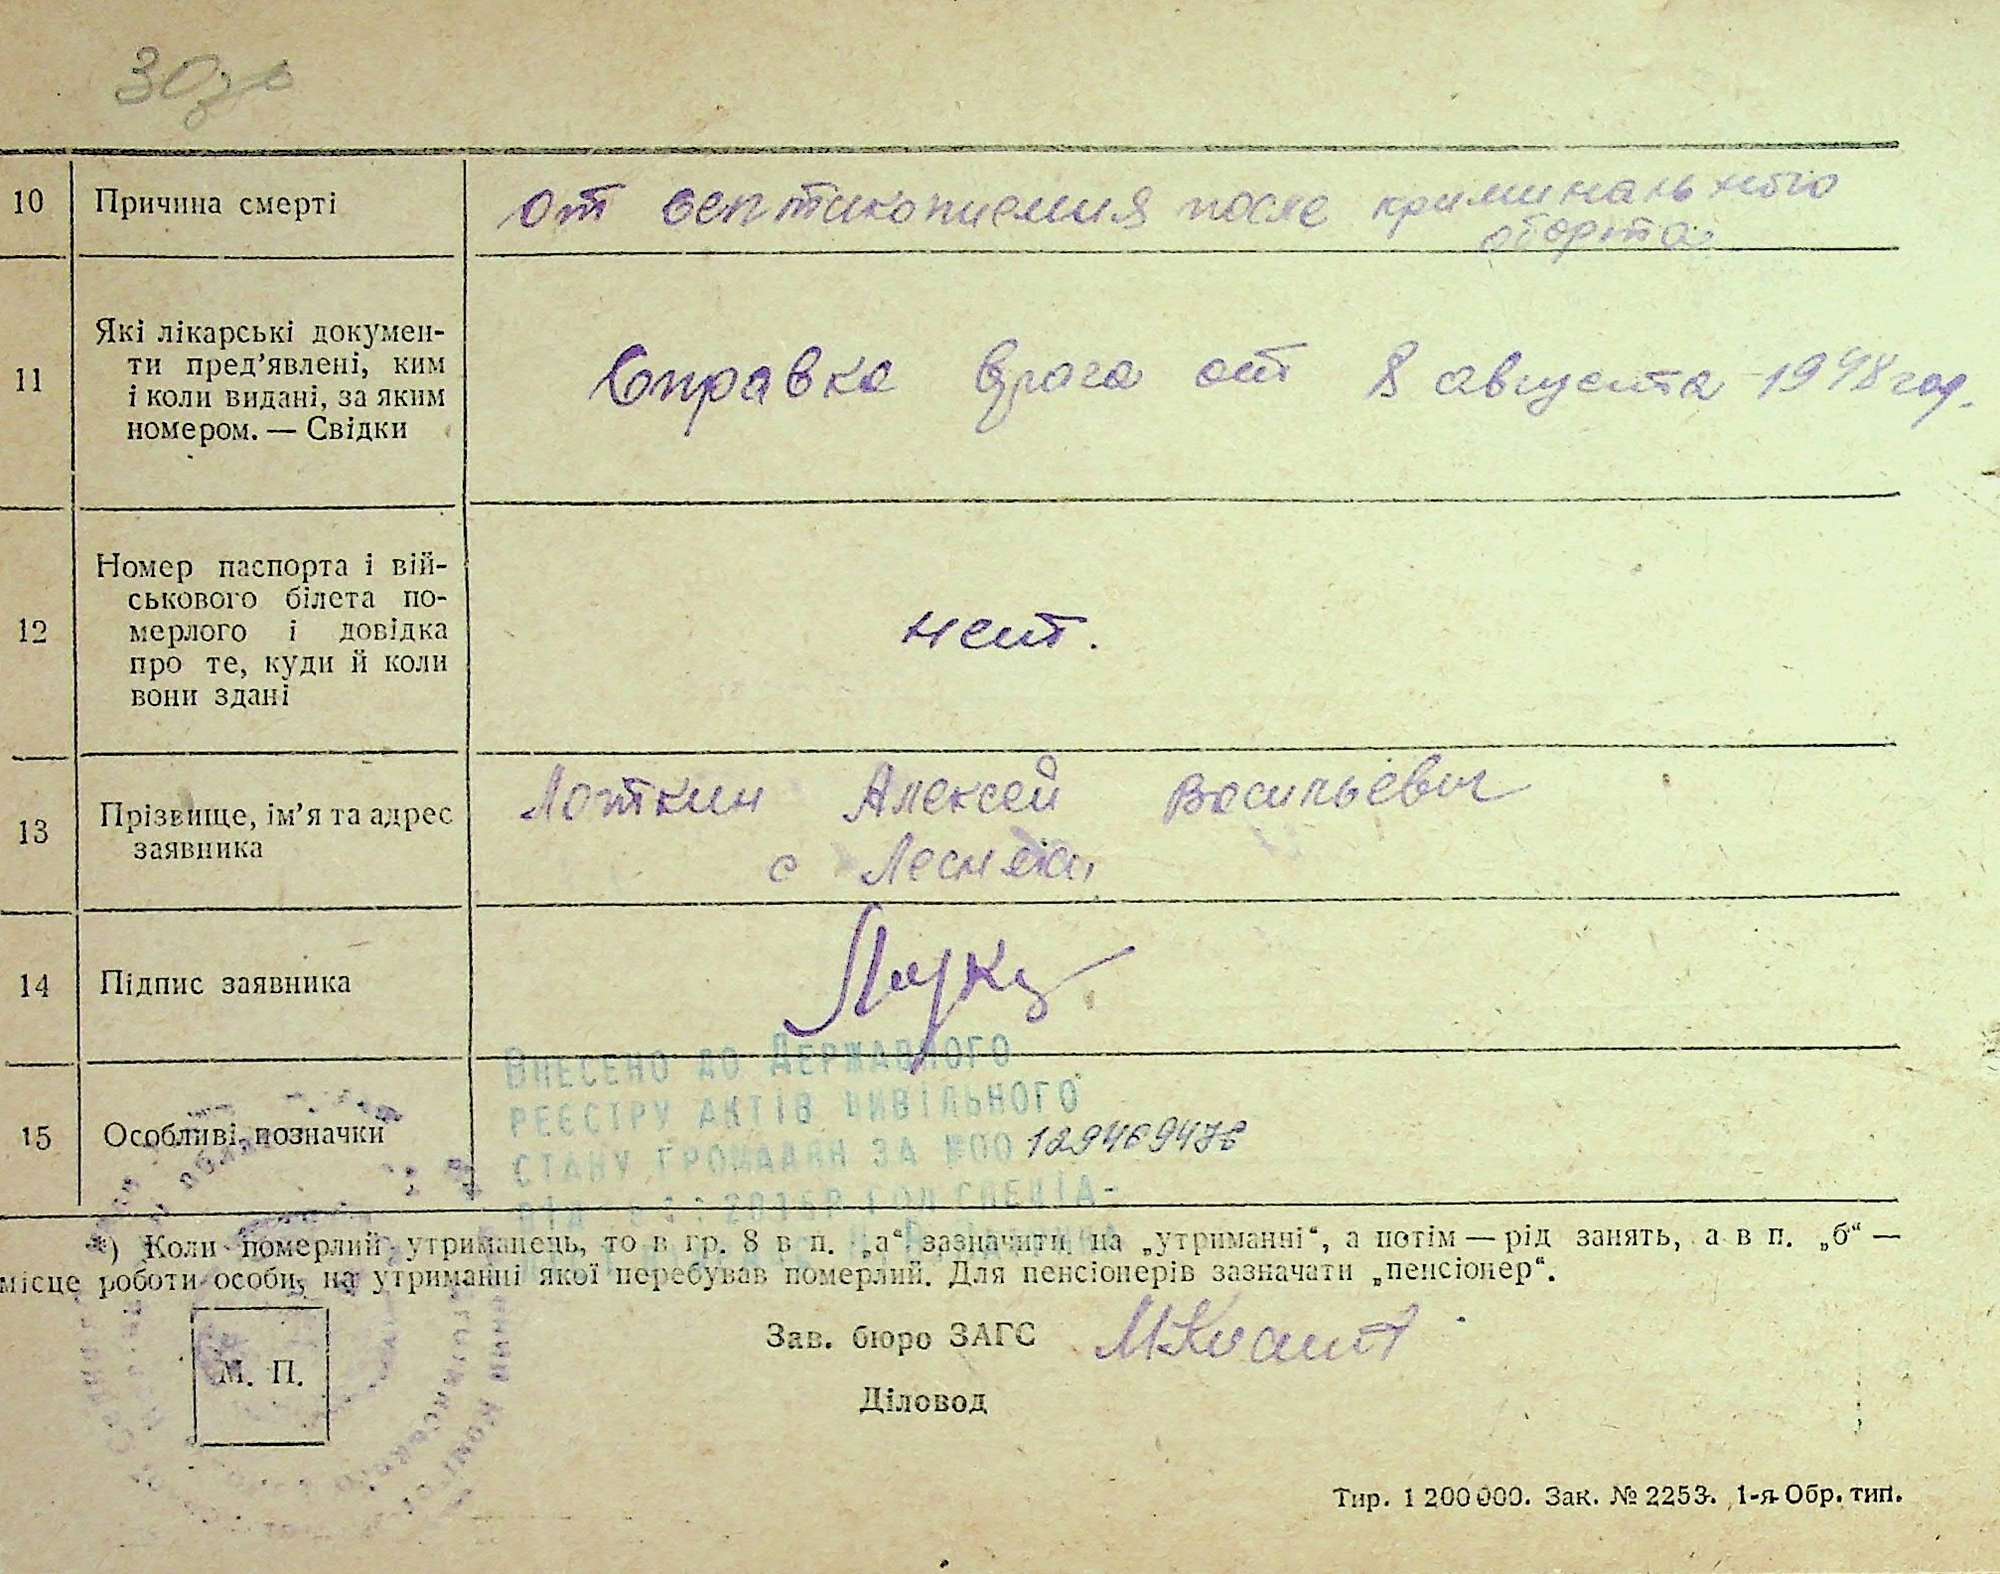 10 Причина смерті от септикопиемия после криминального
аборта
11 Які лікарські докумен-
ти пред’явлені, ким
і коли видані, за яким
номером. — Свідки
Справка врача от 8 августа 1948 год.
12 Номер паспорта і вій-
ськового білета по-
мерлого і довідка
про те, куди й коли
вони здані
нет.
13 Прізвище, ім’я та адрес
заявника
Алексей Васильевич
с
14 Підпис заявника
15 Особливі позначки
Внесено до Державного
реєстру актів цивільного
стану громадян за №00
*) Коли померлий утриманець, то в гр. 8 в п. „а“ зазначити на „утриманні“, а потім — рід занять, а в п. „б“ —
місце роботи особи, на утриманні якої перебував померлий. Для пенсіонерів зазначати „пенсіонер“.
М. П.
Зав. бюро ЗАГС
Діловод
Тир. 1 200 000. Зак. № 2253. 1-я Обр. тип.